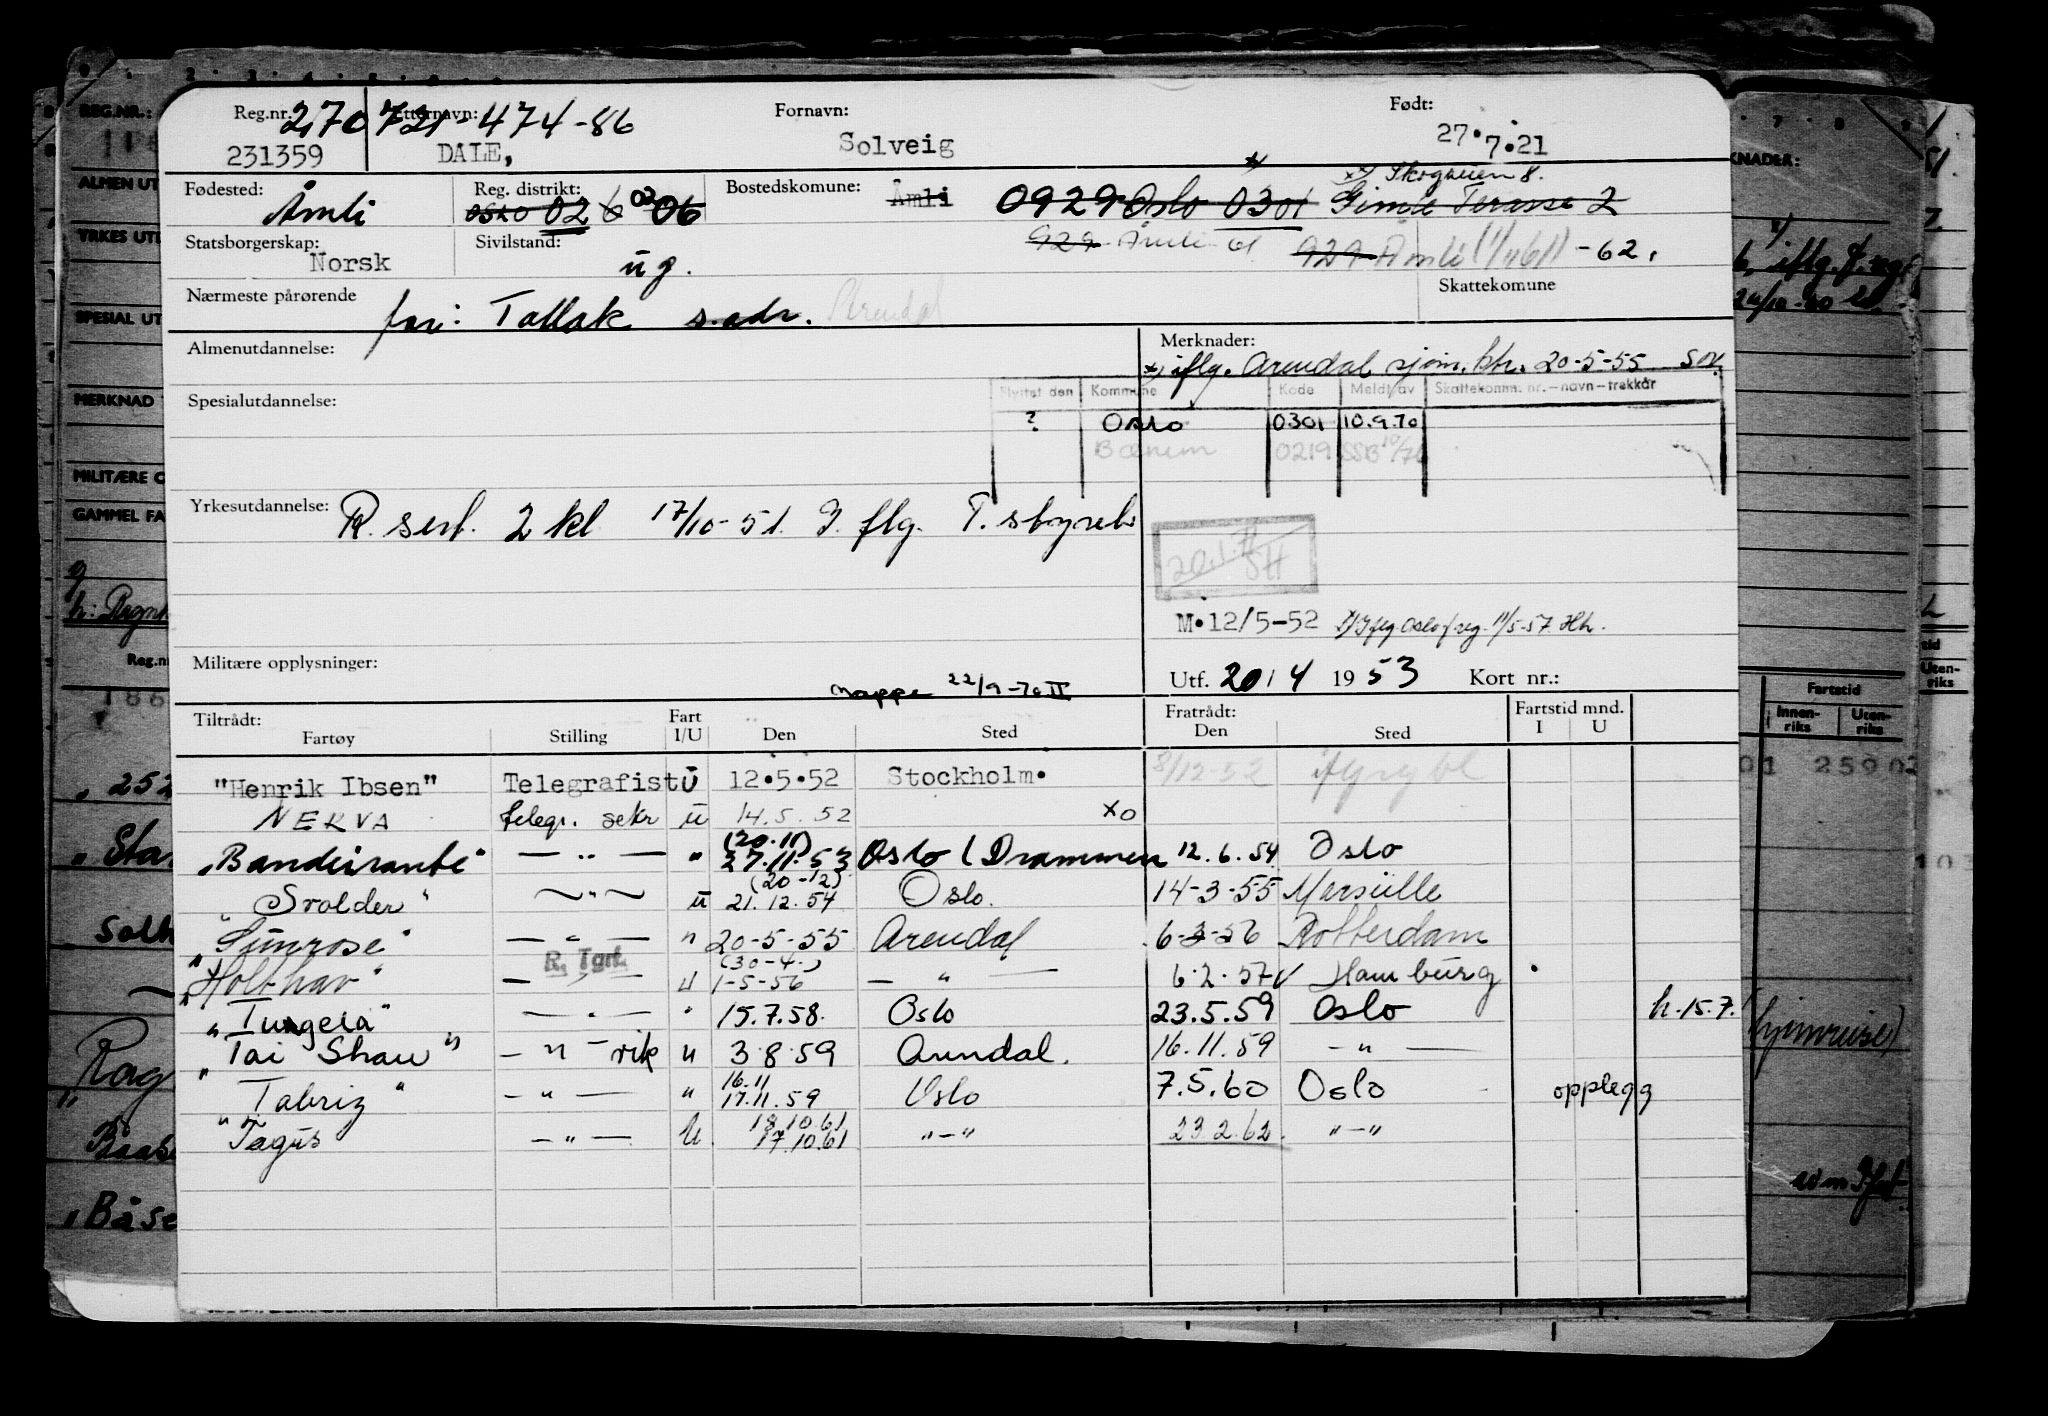 Reg.nr. 270 721-474-86 Etternavn: Fornavn: Født:
231359 DALE, Solveig 27.7.21
Fødested: Åmli Reg. distrikt: OSLO 02 02 06 Bostedskomune: Åmli 0929 Oslo 0301 Gimle Terasse 2
x) Skogveien 8.
Statsborgerskap: Norsk Sivilstand: ug. 929 Åmli 61 929 Åmli (1/1 61) -62.
Nærmeste pårørende far: Tallak s.adr. Arendal Skattekomune
Almenutdannelse: Merknader:
x) iflg. Arendal sjøm.ktr. 20-5-55
Spesialutdannelse: Flyttet den Kommune Kode Meldt av Skattekomm. nr.—navn—trekkår
? Oslo 0301 10.9.70
Bærum 0219 SSB 10/70
Yrkesutdannelse: R. sert. 2 kl 17/10-51. I. flg. T. styret.
20.1.71
SH
M.12/5-52 I flg Oslo f.reg. 11/5-57.
Militære opplysninger: Mappe 22/9-70 II Utf. 20/4 1953 Kort nr.:
Tiltrådt: Fart Fratrådt: Fartstid mnd.
Fartøy Stilling I/U Den Sted Den Sted I U
"Henrik Ibsen" Telegrafist U 12.5.52 Stockholm. 8/12-52
NERVA telegr. sekr u 14.5.52 xo
"Bandeirante" — " — " (20.11) 27.11.53 Oslo (Drammen 12.6.54 Oslo
"Svolder" — " — u (20-12) 21.12.54 Oslo. 14-3-55 Marseille
"Sunrose" — " — " 20-5-55 Arendal 6-3-56 Rotterdam
"Holthav" R. Tgrt. — " — u (30-4.) 1-5-56 — " — 6.2.57 Hamburg
"Tungela" — " — " 15.7.58. Oslo 23.5.59 Oslo h.15.7.
"Tai Shan" — " — vik " 3.8.59 Arendal. 16.11.59 — " —
"Tabriz" — " — " 16.11 17.11.59 Oslo 7.5.60 Oslo opplegg
"Tagus — " — U. 18.10.61 17.10.61 "—" 23.2.62. "—"
REG.NR.:
ALMEN UT
YRKES UT
SPESIAL UT
MERKNAD
MILITÆRE
GAMMEL FA
Reg.nr
KNADER:
Fartstid
Innen-
riks
Uten-
riks
259 02